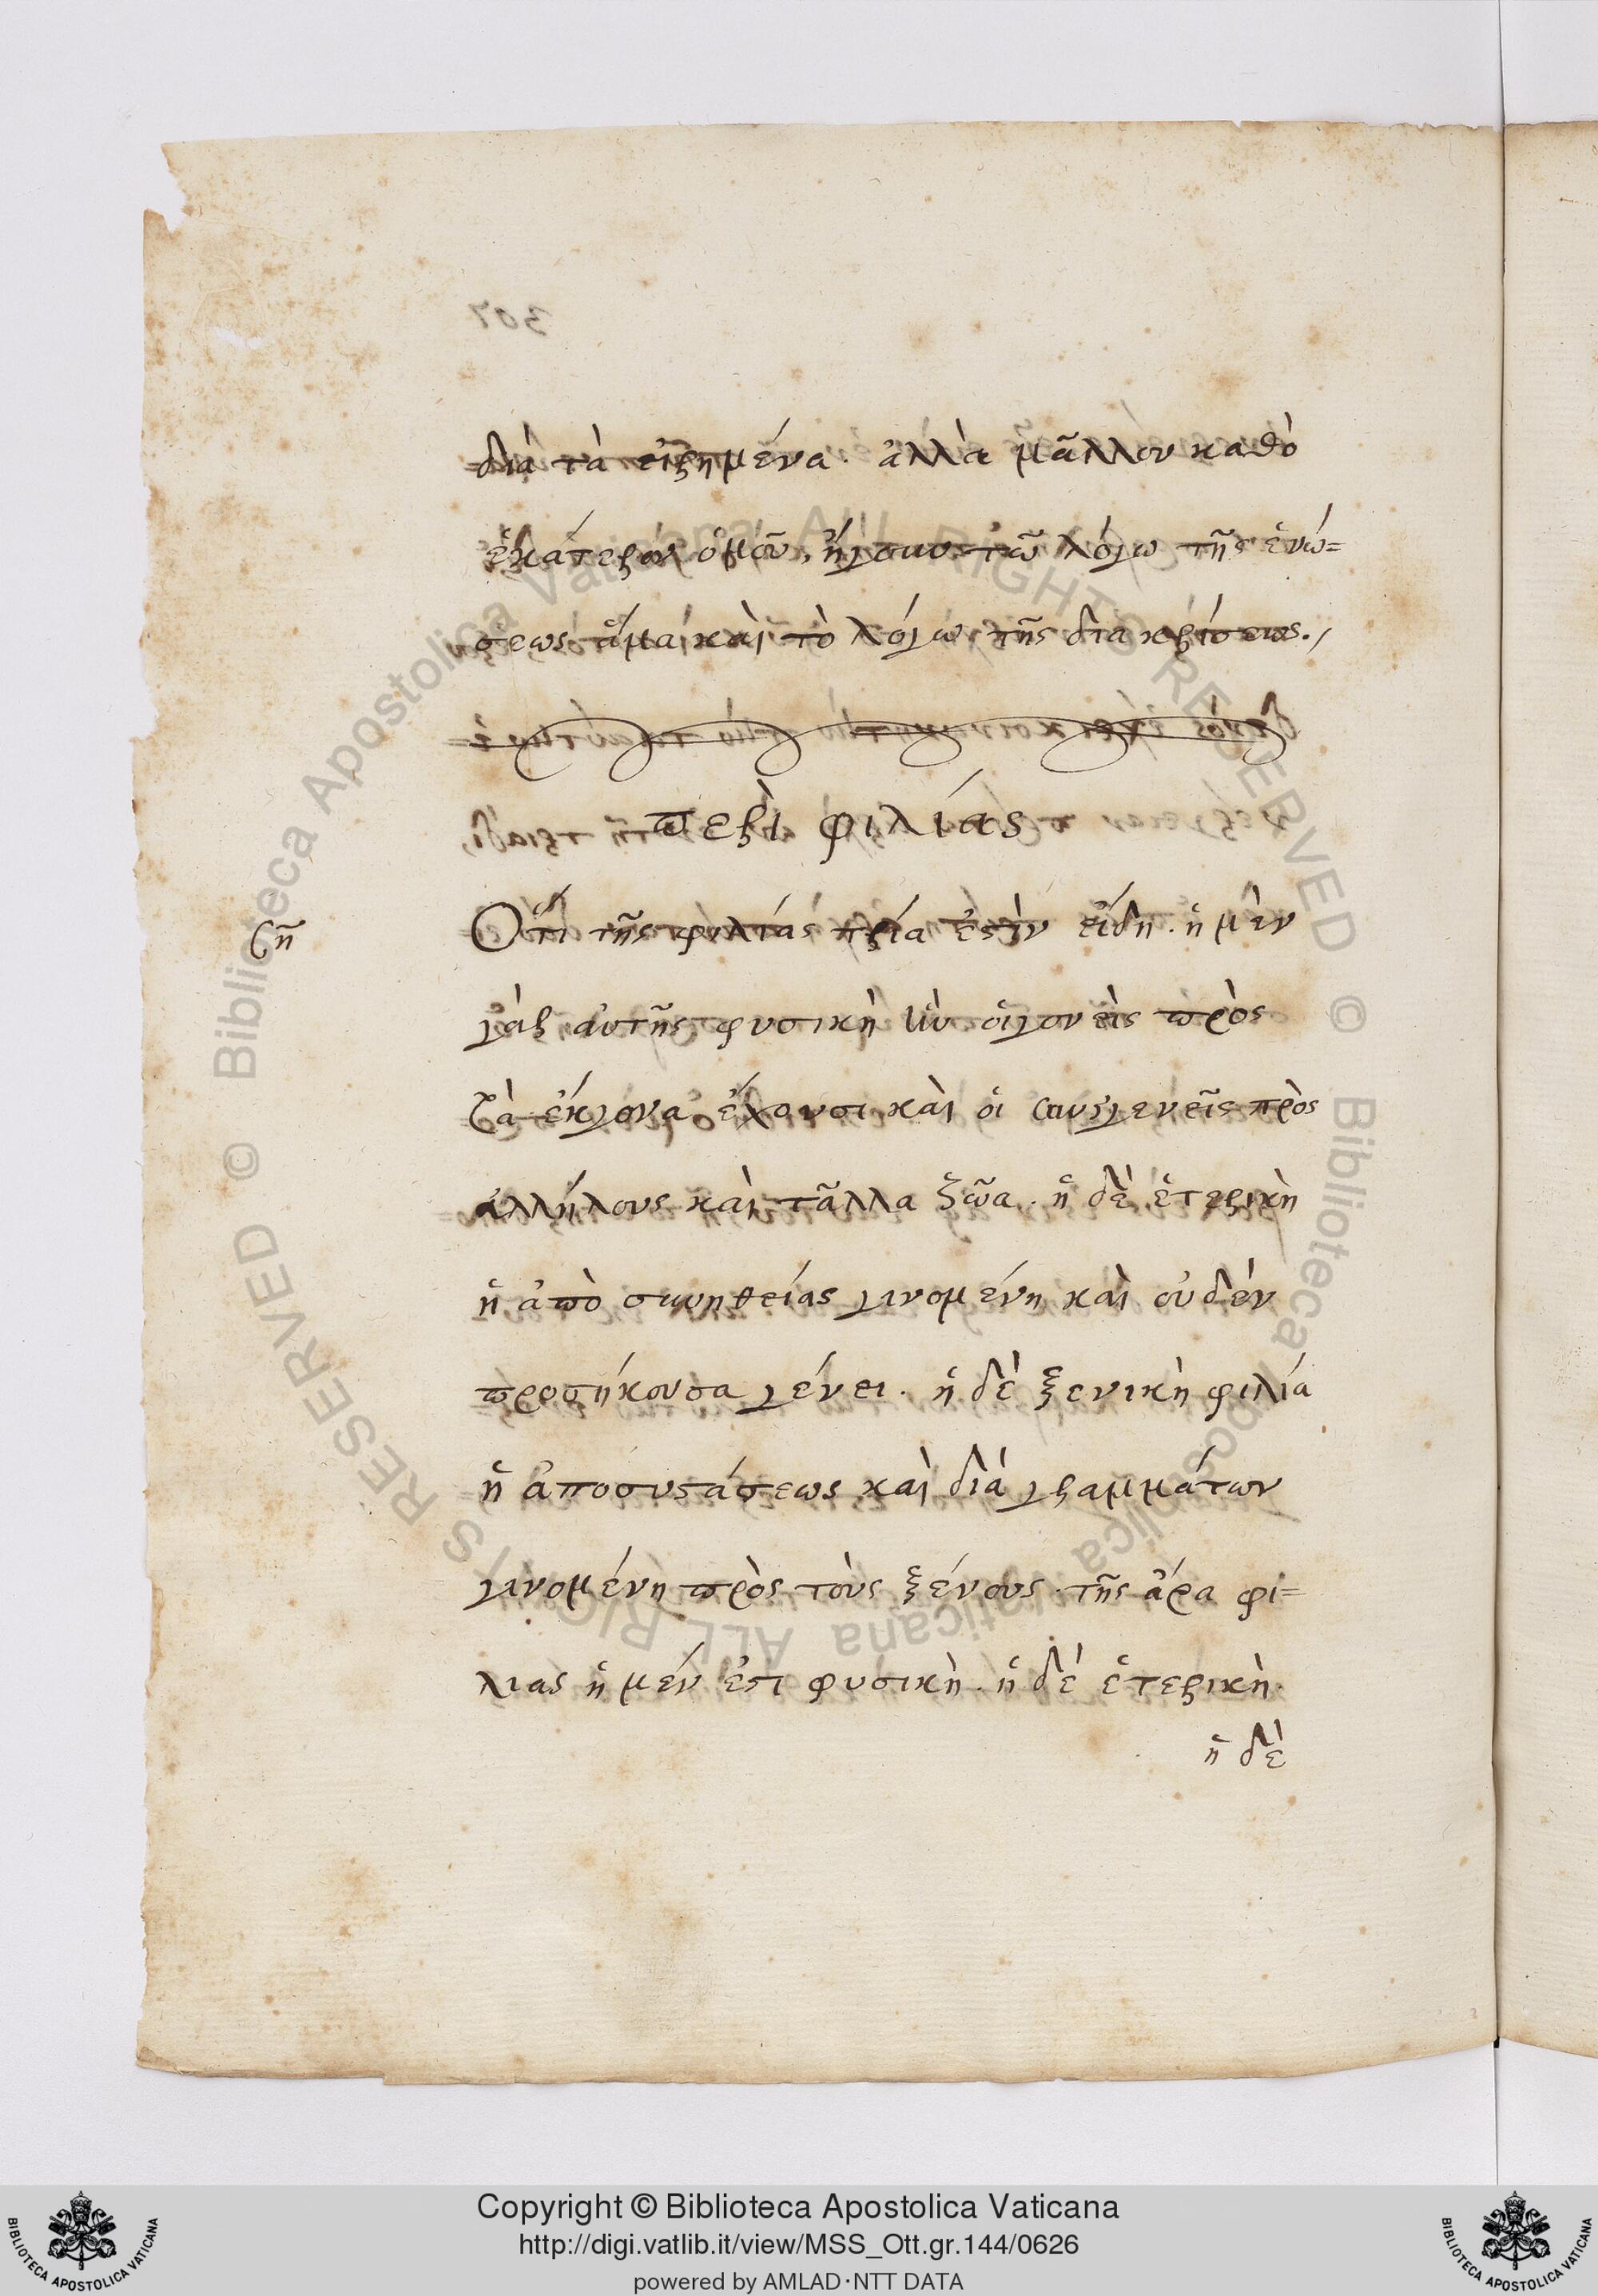 διὰ τὰ εἰρημένα. ἀλλὰ μᾶλλον καθὸ
ἑκάτερον ὁμοῦ, ἤγουν τῶ λόγω τῆς ἑνώ=
σεως ἅμα καὶ τὸ λόγω τῆς διακρίσεως.,
περὶ φιλίας
ση
Ὅτι τῆς φιλίας τρία ἐστὶν εἴδη. ἡ μὲν
γὰρ αὐτῆς φυσικὴ ἣν οἱ γονεὶς πρὸς
τὰ ἔκγονα ἔχουσι καὶ οἱ συγγενεῖς πρὸς
ἀλλήλους καὶ τἆλλα ζῶα. ἡ δὲ ἑτερικὴ
ἡ ἀπὸ συνηθείας γινομένη καὶ οὐδὲν
προσήκουσα γένει. ἡ δὲ ξενικὴ φιλία
ἡ ἀποσυστάσεως καὶ διὰ γραμμάτων
γινομένη πρὸς τοὺς ξένους. τῆς ἄρα φι=
λιας ἡ μέν ἐστι φυσικὴ. ἡ δὲ ἑτερικὴ.
ἡ δὲ
307
© Biblioteca Apostolica Vaticana ALL RIGHTS RESERVED © Biblioteca Apostolica Vaticana ALL RIGHTS RESERVED
Copyright © Biblioteca Apostolica Vaticana
http://digi.vatlib.it/view/MSS_Ott.gr.144/0626
powered by AMLAD·NTT DATA
BIBLIOTECA APOSTOLICA VATICANA
BIBLIOTECA APOSTOLICA VATICANA